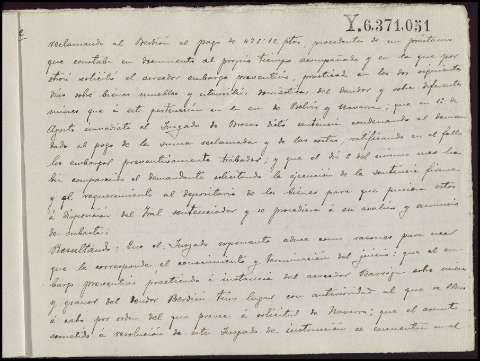 Y.6.371.051
reclamando al Berdión al pago de ptas procedentes de un préstamo
que constaba en documento al propio tiempo acompañado y en la que por
otrosí solicitó el acreedor embargo preventivo, practicado en los dos siguientes
días sobre bienes muebles y utensilios domésticos del deudor y sobre diferentes
que á este pertenecían en la de y Navarra; que en 12 de
Agosto inmediato el Juzgado de dictó sentencia condenando al deman
dado al pago de la suma reclamada y de las costas, ratificando en el fallo
los embargos preventivamente trabados; y que el día 2 del mismo mes ha
bía comparecido el demandante solicitando la ejecución de la sentencia firme
y el requerimiento al depositario de los bienes para que pusiera estos
á disposición del Tral sentenciador y se procediera á su avalúo y anuncio
de subasta:
Resultando: Que el Juzgado exponente aduce como razones para creer
que le corresponde el conocimiento y terminación del juicio: que el em
bargo preventivo practicado á instancia del acreedor sobre
y del deudor Berdión tuvo lugar con anterioridad al que se llevó
á cabo por orden del que provee á solicitud de Navarro; que el asunto
sometido á resolución de este Juzgado de instrucción se encuentra en el